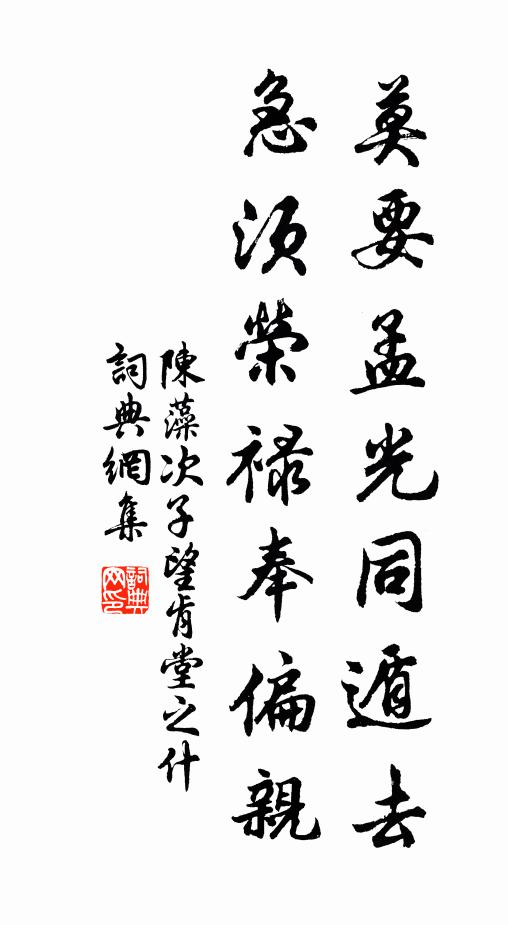 莫要孟光同遁去
急須榮祿奉偏親
陳藻次子望肯堂之什
詞典網集
詞典网印